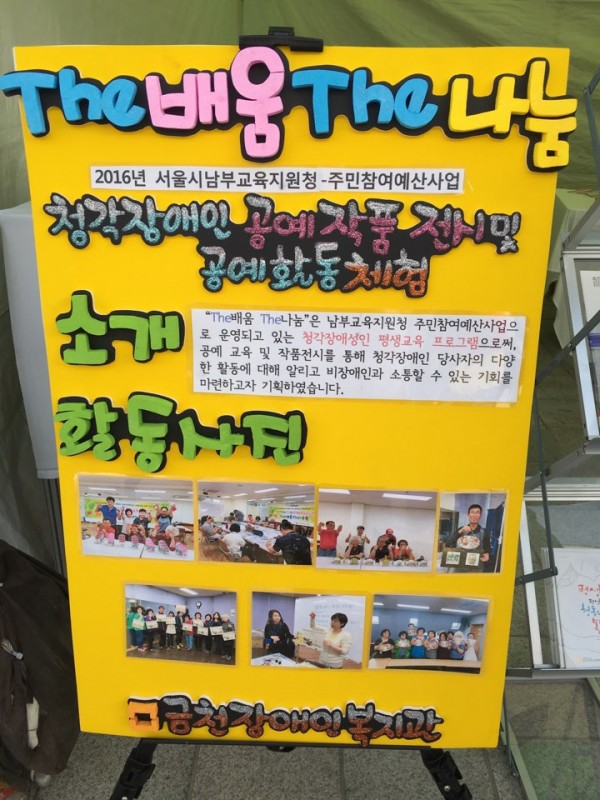 The배움The나눔
2016년 서울시남부교육지원청-주민참여예산사업
청각장애인 공예작품 전시및
공예활동체험
소개
"The배움 The나눔"은 남부교육지원청 주민참여예산사업으
로 운영되고 있는 청각장애성인 평생교육 프로그램으로써,
공예 교육 및 작품전시를 통해 청각장애인 당사자의 다양
한 활동에 대해 알리고 비장애인과 소통할 수 있는 기회를
마련하고자 기획하였습니다.
활동사진
금천장애인복지관